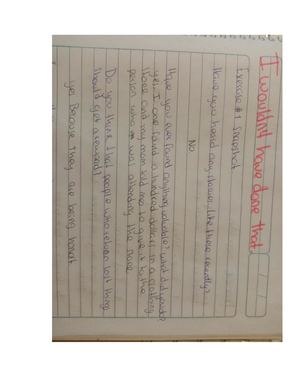 I wouldn't have done that
Exercise #1 Snapshot
Have you heard any stories like these recently?
No
Have you ever found anything valuable? what did you do?
Yes, I once found a hundred dollars in a clothing
store and my mom told me to give it to the
person who was attending the store
Do you think that people who return lost thing
should get a reward?
yes Because they are being honest